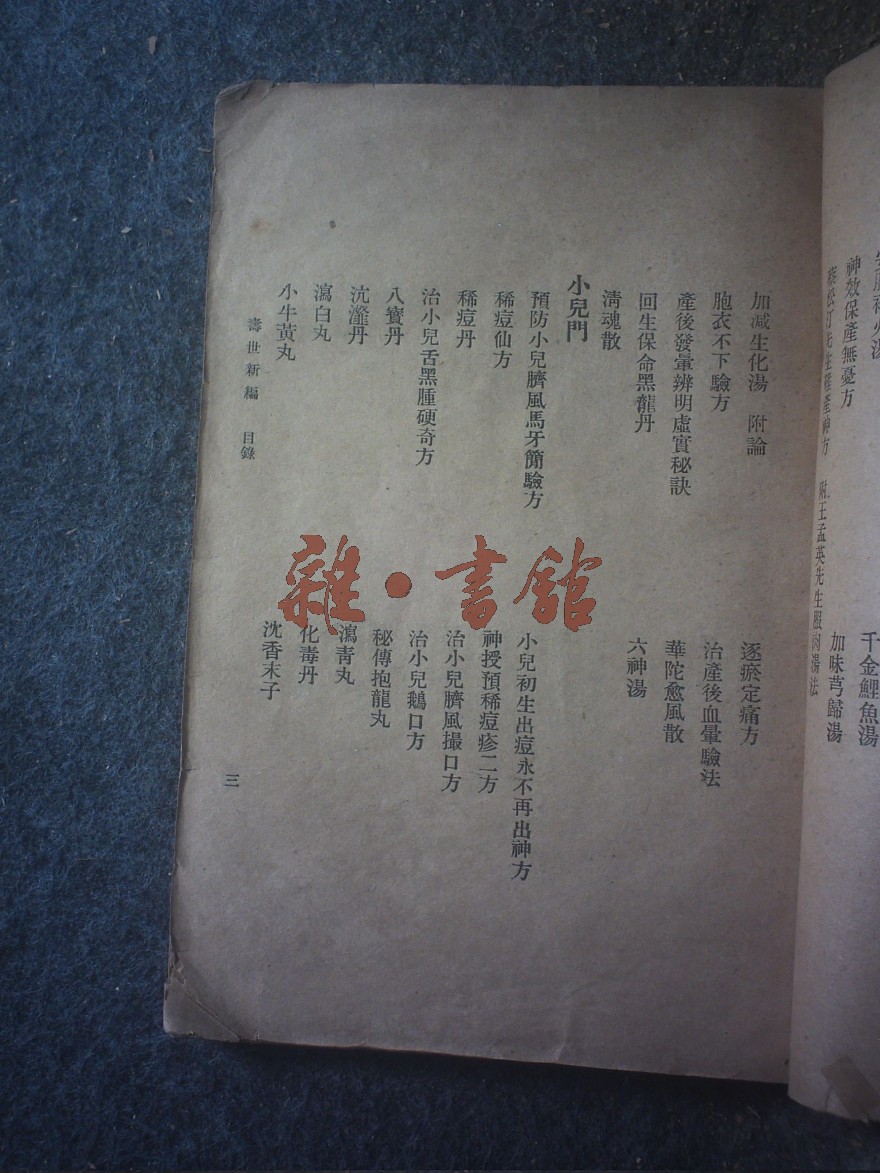 千金鯉魚湯
神效保產無憂方
加味芎歸湯
蔡松汀先生難產神方 附王孟英先生服肉湯法
加減生化湯 附論
逐瘀定痛方
胞衣不下驗方
治產後血暈驗法
產後發暈辨明虛實秘訣
華陀愈風散
回生保命黑龍丹
六神湯
清魂散
小兒門
預防小兒臍風馬牙簡驗方
小兒初生出痘永不再出神方
稀痘仙方
神授預稀痘疹二方
稀痘丹
治小兒臍風撮口方
治小兒舌黑腫硬奇方
治小兒鵝口方
八寶丹
秘傳抱龍丸
沆瀣丹
瀉青丸
瀉白丸
化毒丹
小牛黃丸
沈香末子
壽世新編 目錄
三
雜·書館